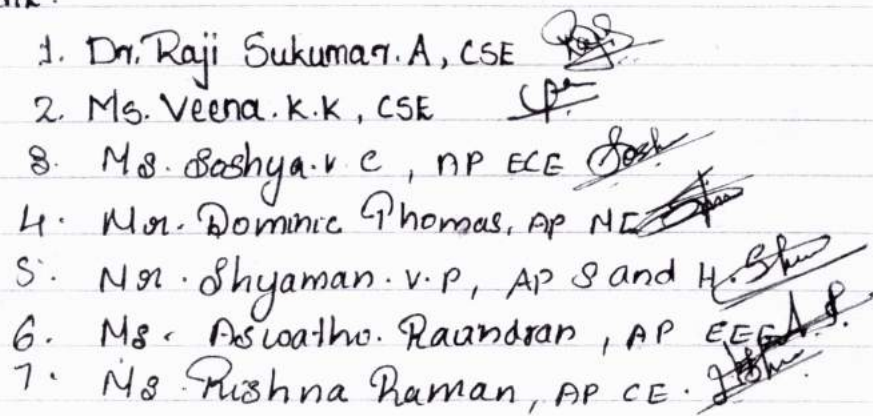 1. Dr. Raji Sukumar. A, CSE
2. Ms. Veena. K.K, CSE
3. Ms. Soshya. V C, AP ECE
4. Mr. Dominic Thomas, AP ME
5. Mr. Shyaman. V. P, AP S and H.
6. Ms. Aswathy. Raundran, AP EEE
7. Ms Rishna Raman, AP CE.